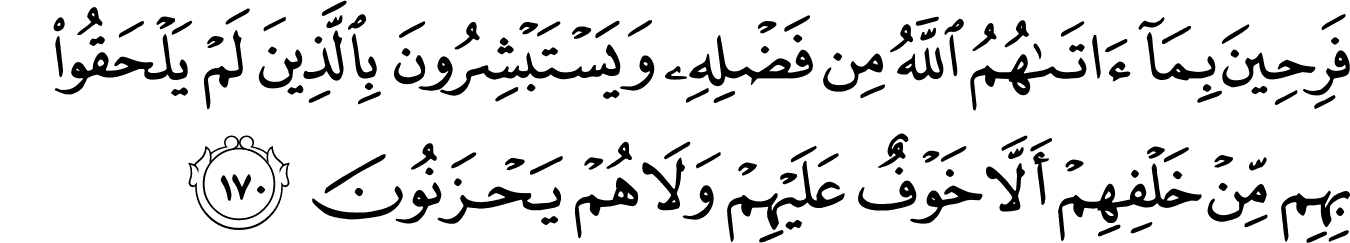 فَرِحِينَ بِمَآ ءَاتَىٰهُمُ ٱللَّهُ مِن فَضْلِهِۦ وَيَسْتَبْشِرُونَ بِٱلَّذِينَ لَمْ يَلْحَقُوا۟
بِهِم مِّنْ خَلْفِهِمْ أَلَّا خَوْفٌ عَلَيْهِمْ وَلَا هُمْ يَحْزَنُونَ ١٧٠